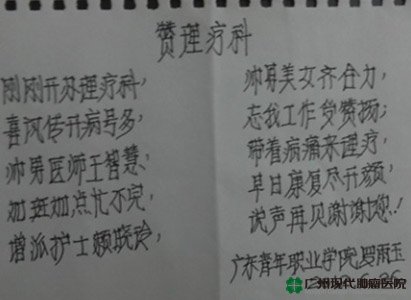 赞理疗科
刚刚开办理疗科，
喜讯传开病号多，
帅男医师王智慧，
加班加点忙不完，
增派护士顾晓玲，
帅男美女齐合力，
忘我工作受赞扬；
带着病痛来理疗，
早日康复尽开颜，
说声再见谢谢您！
广东青年职业学院：罗雨玉
广州现代肿瘤医院